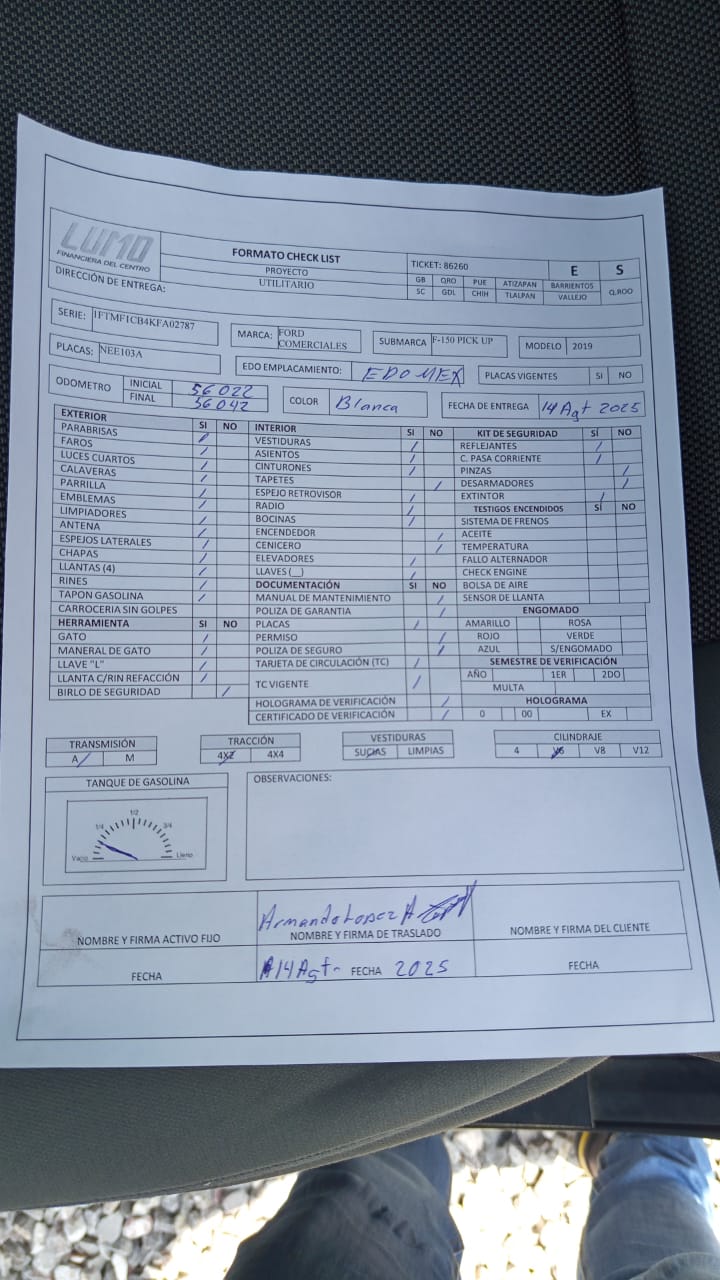 LUMO
FINANCIERA DEL CENTRO
FORMATO CHECK LIST
PROYECTO
UTILITARIO
TICKET: 86260
E S
GB QRO PUE ATIZAPAN BARRIENTOS Q.ROO
SC GDL CHIH TLALPAN VALLEJO
DIRECCIÓN DE ENTREGA:
SERIE: 1FTMF1CB4KFA02787
MARCA: FORD COMERCIALES
SUBMARCA F-150 PICK UP
MODELO 2019
PLACAS: NEE103A
EDO EMPLACAMIENTO: EDOMEX
PLACAS VIGENTES SI NO
ODOMETRO INICIAL 56022
FINAL 56042
COLOR Blanca
FECHA DE ENTREGA 14 Agt 2025
EXTERIOR SI NO
PARABRISAS /
FAROS /
LUCES CUARTOS /
CALAVERAS /
PARRILLA /
EMBLEMAS /
LIMPIADORES /
ANTENA /
ESPEJOS LATERALES /
CHAPAS /
LLANTAS (4) /
RINES /
TAPON GASOLINA /
CARROCERIA SIN GOLPES
HERRAMIENTA SI NO
GATO /
MANERAL DE GATO /
LLAVE "L" /
LLANTA C/RIN REFACCIÓN /
BIRLO DE SEGURIDAD /
INTERIOR SI NO
VESTIDURAS /
ASIENTOS /
CINTURONES /
TAPETES /
ESPEJO RETROVISOR /
RADIO /
BOCINAS /
ENCENDEDOR /
CENICERO /
ELEVADORES /
LLAVES (__) /
DOCUMENTACIÓN SI NO
MANUAL DE MANTENIMIENTO /
POLIZA DE GARANTIA /
PLACAS /
PERMISO /
POLIZA DE SEGURO /
TARJETA DE CIRCULACIÓN (TC) /
TC VIGENTE /
HOLOGRAMA DE VERIFICACIÓN /
CERTIFICADO DE VERIFICACIÓN /
KIT DE SEGURIDAD SÍ NO
REFLEJANTES /
C. PASA CORRIENTE /
PINZAS /
DESARMADORES /
EXTINTOR /
TESTIGOS ENCENDIDOS SÍ NO
SISTEMA DE FRENOS
ACEITE
TEMPERATURA
FALLO ALTERNADOR
CHECK ENGINE
BOLSA DE AIRE
SENSOR DE LLANTA
ENGOMADO
AMARILLO ROSA
ROJO VERDE
AZUL S/ENGOMADO
SEMESTRE DE VERIFICACIÓN
AÑO 1ER 2DO
MULTA
HOLOGRAMA
0 00 EX
TRANSMISIÓN
A / M
TRACCIÓN
4X2 4X4
VESTIDURAS
SUCIAS LIMPIAS
CILINDRAJE
4 V6 V8 V12
TANQUE DE GASOLINA
1/4 1/2 3/4
Vacío Lleno
OBSERVACIONES:
Armando Lopez A
NOMBRE Y FIRMA ACTIVO FIJO
NOMBRE Y FIRMA DE TRASLADO
NOMBRE Y FIRMA DEL CLIENTE
FECHA
14 Agt- FECHA 2025
FECHA